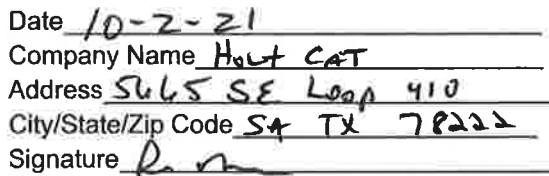 Date 10-2-21
Company Name Holt CAT
Address 5665 SE Loop 410
City/State/Zip Code SA TX 78222
Signature